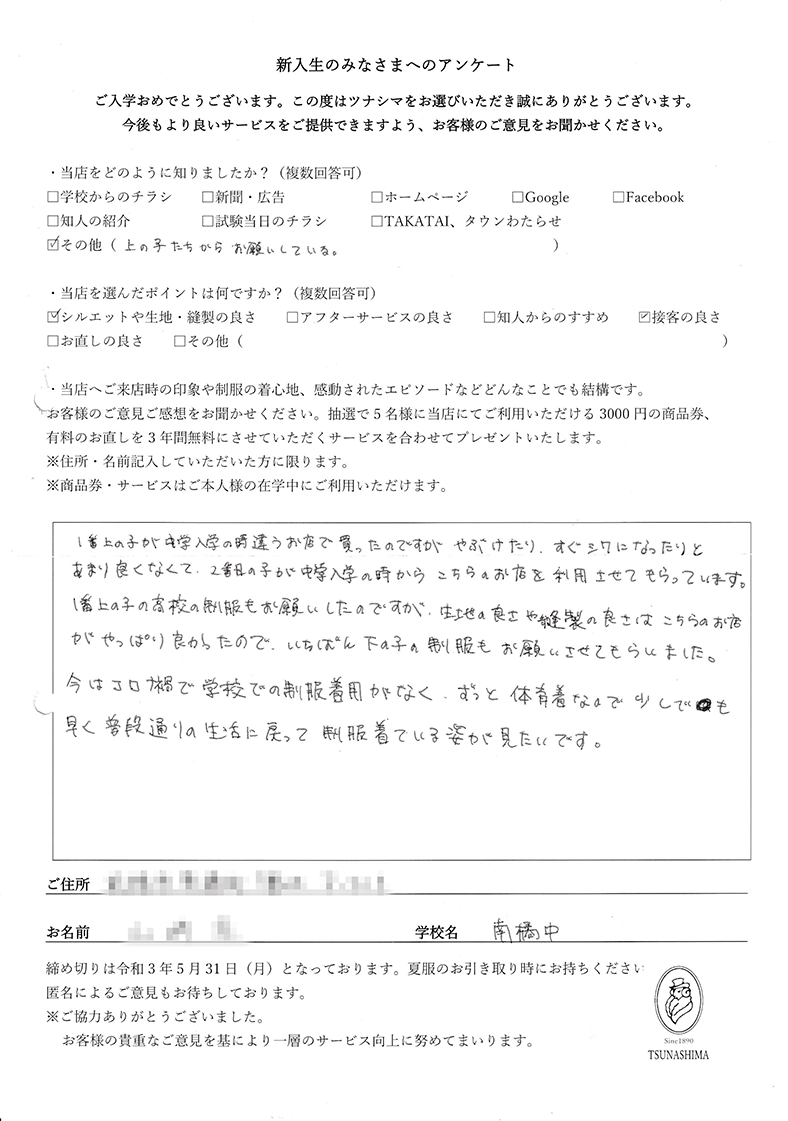 新入生のみなさまへのアンケート
ご入学おめでとうございます。この度はツナシマをお選びいただき誠にありがとうございます。
今後もより良いサービスをご提供できますよう、お客様のご意見をお聞かせください。
・当店をどのように知りましたか？（複数回答可）
□学校からのチラシ □新聞・広告 □ホームページ □Google □Facebook
□知人の紹介 □試験当日のチラシ □TAKATAI、タウンわたらせ
☑その他（ 上の子たちから お願いしている。 ）
・当店を選んだポイントは何ですか？（複数回答可）
☑シルエットや生地・縫製の良さ □アフターサービスの良さ □知人からのすすめ ☑接客の良さ
□お直しの良さ □その他（ ）
・当店へご来店時の印象や制服の着心地、感動されたエピソードなどどんなことでも結構です。
お客様のご意見ご感想をお聞かせください。抽選で5名様に当店にてご利用いただける3000円の商品券、
有料のお直しを3年間無料にさせていただくサービスを合わせてプレゼントいたします。
※住所・名前記入していただいた方に限ります。
※商品券・サービスはご本人様の在学中にご利用いただけます。
1番上の子が中学入学の時違うお店で買ったのですが やぶけたり、すぐシワになったりと
あまり良くなくて、2番目の子が中学入学の時から こちらのお店を利用させてもらっています。
1番上の子の高校の制服もお願いしたのですが、生地の良さや縫製の良さは こちらのお店
がやっぱり良かったので、いちばん下の子の制服もお願いさせてもらいました。
今はコロナ禍で学校での制服着用がなく、ずっと体育着なので少しでも
早く普段通りの生活に戻って制服着ている姿が見たいです。
ご住所
お名前 学校名 南橘中
締め切りは令和3年5月31日（月）となっております。夏服のお引き取り時にお持ちください
匿名によるご意見もお待ちしております。
※ご協力ありがとうございました。
お客様の貴重なご意見を基により一層のサービス向上に努めてまいります。
Sine1890
TSUNASHIMA